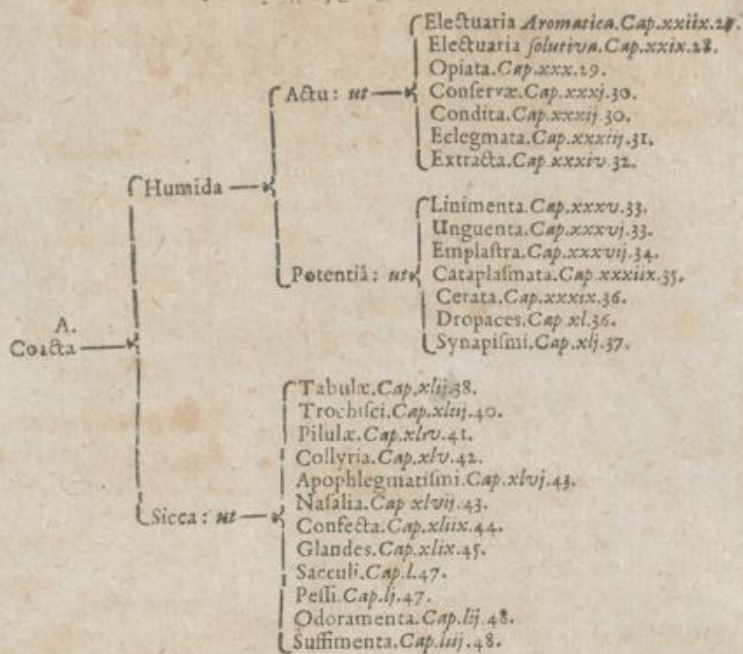 Electuaria Aromatica.Cap.xxiix.27.
Electuaria ſolutiva.Cap.xxix.28.
Opiata.Cap.xxx.29.
Actu: ut
Conſervæ.Cap.xxxj.30.
Condita.Cap.xxxij.30.
Eclegmata.Cap.xxxiij.31.
Extracta.Cap xxxiv.32.
Humida
Linimenta.Cap.xxxv.33.
Unguenta.Cap.xxxvj.33.
Emplaſtra.Cap.xxxvij.34.
Potentiâ: ut
Cataplaſmata.Cap.xxxiix.35.
Cerata.Cap.xxxix.36.
Dropaces.Cap xl.36.
Synapiſmi.Cap.xlj.37.
A.
Coacta
Tabulæ.Cap.xlij.38.
Trochiſci.Cap.xliij.40.
Pilulæ.Cap.xliv.41.
Collyria.Cap.xlv.42.
Apophlegmatiſmi.Cap.xlvj.43.
Naſalia.Cap xlvij.43.
Sicca: ut
Confecta.Cap.xliix.44.
Glandes.Cap.xlix.45.
Sacculi.Cap.l.47.
Peſſi.Cap.lj.47.
Odoramenta.Cap.lij.48.
Suffimenta.Cap.liij.48.